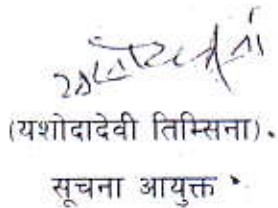 (यशोदादेवी तिम्सिना).
सूचना आयुक्त